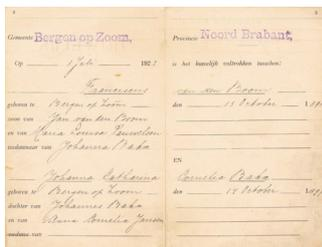 Gemeente Bergen op Zoom,
Op 1 Juli 192
Franciscus
geboren te Bergen op Zoom
zoon van Jan van den Boom
en van Maria Louisa
weduwnaar van Johanna Baka
Johanna Catharina
geboren te Bergen op Zoom
dochter van Johannes Baka
en van Anna Cornelia Jansen
weduwe van
Provincie Noord Brabant,
is het huwelijk voltrokken tusschen:
van den Boom
den 15 October
EN
Cornelia Baka
den 14 October